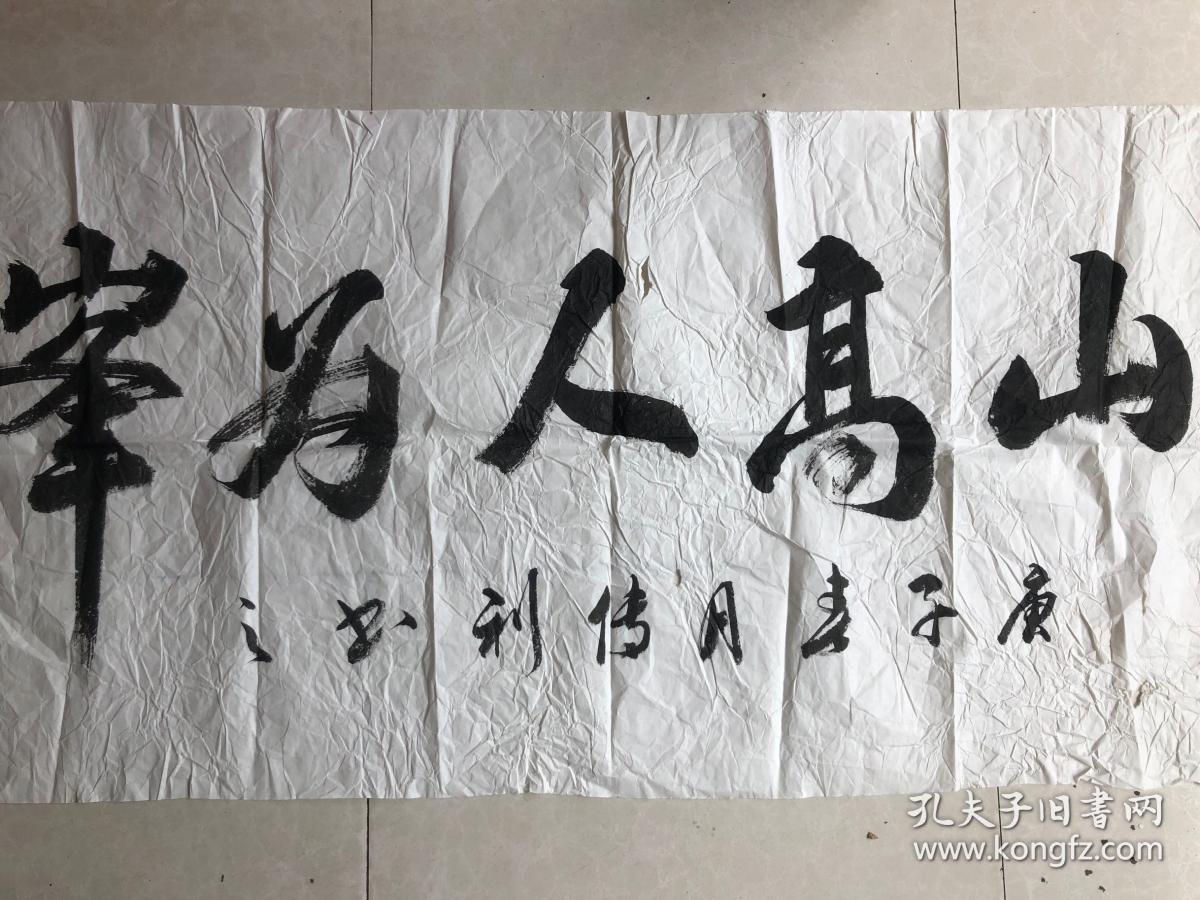 山高人为峯
庚子春月传利书之
孔夫子旧書网
www.kongfz.com